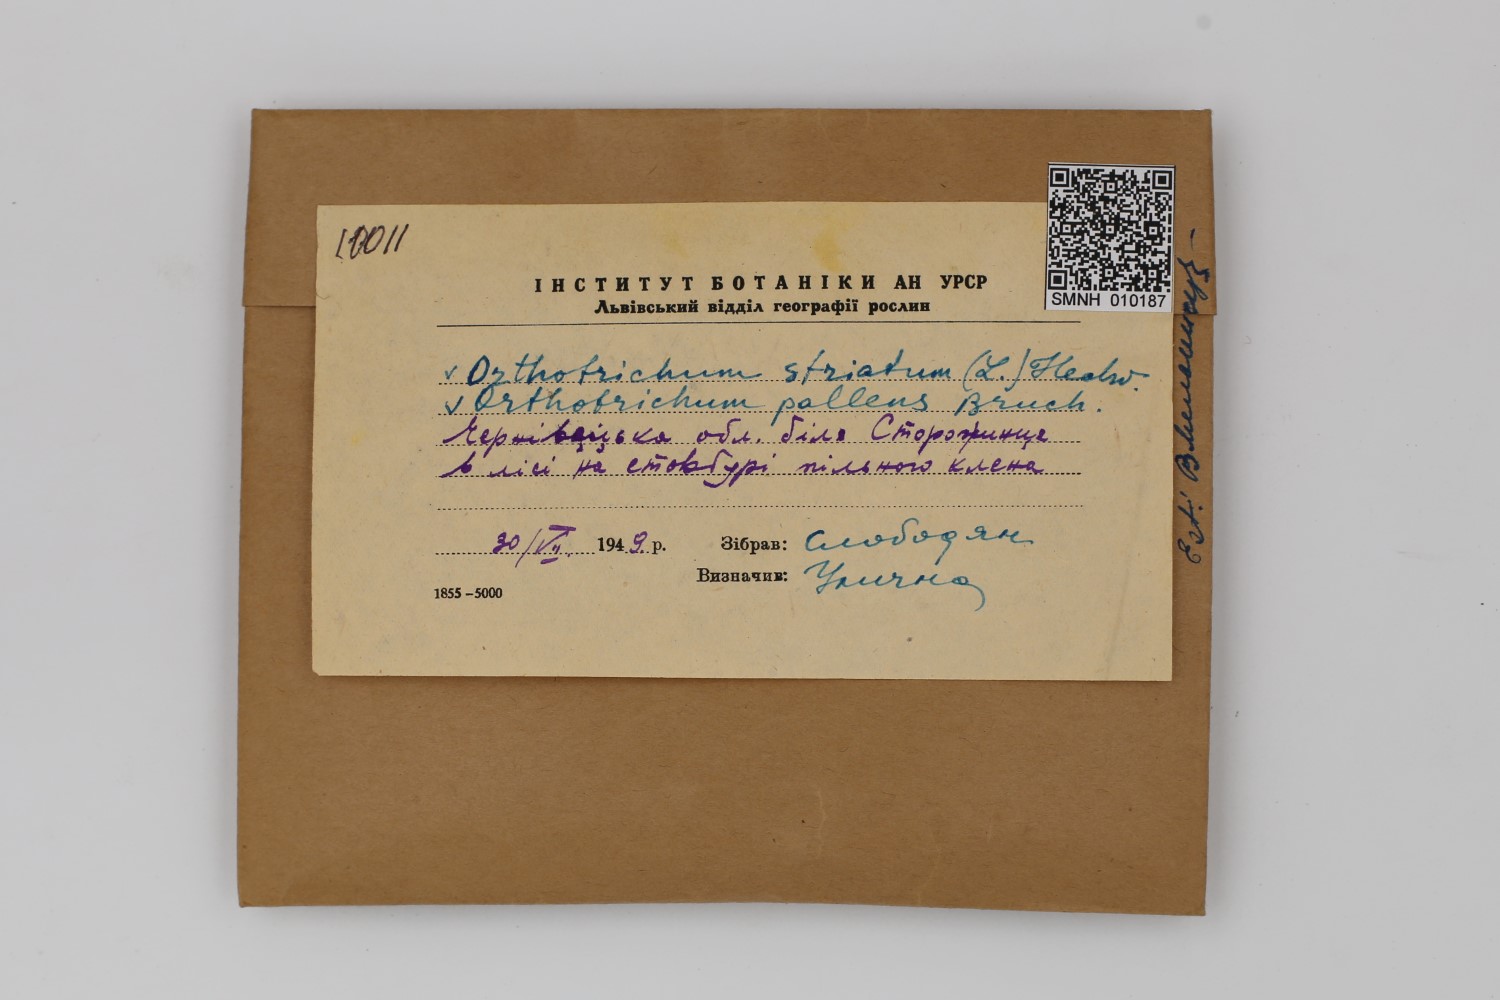 10011
ІНСТИТУТ БОТАНІКИ АН УРСР
Львівський відділ географії рослин
SMNH 010187
v Orthotrichum striatum (L.) Hedw.
v Orthotrichum pallens Bruch.
Чернівецька обл. біля Сторожинця
в лісі на стовбурі пільного клена
30/VII. 1949. р.
Зібрав: Слободян
Визначив: Улична
1855 – 5000
Est: